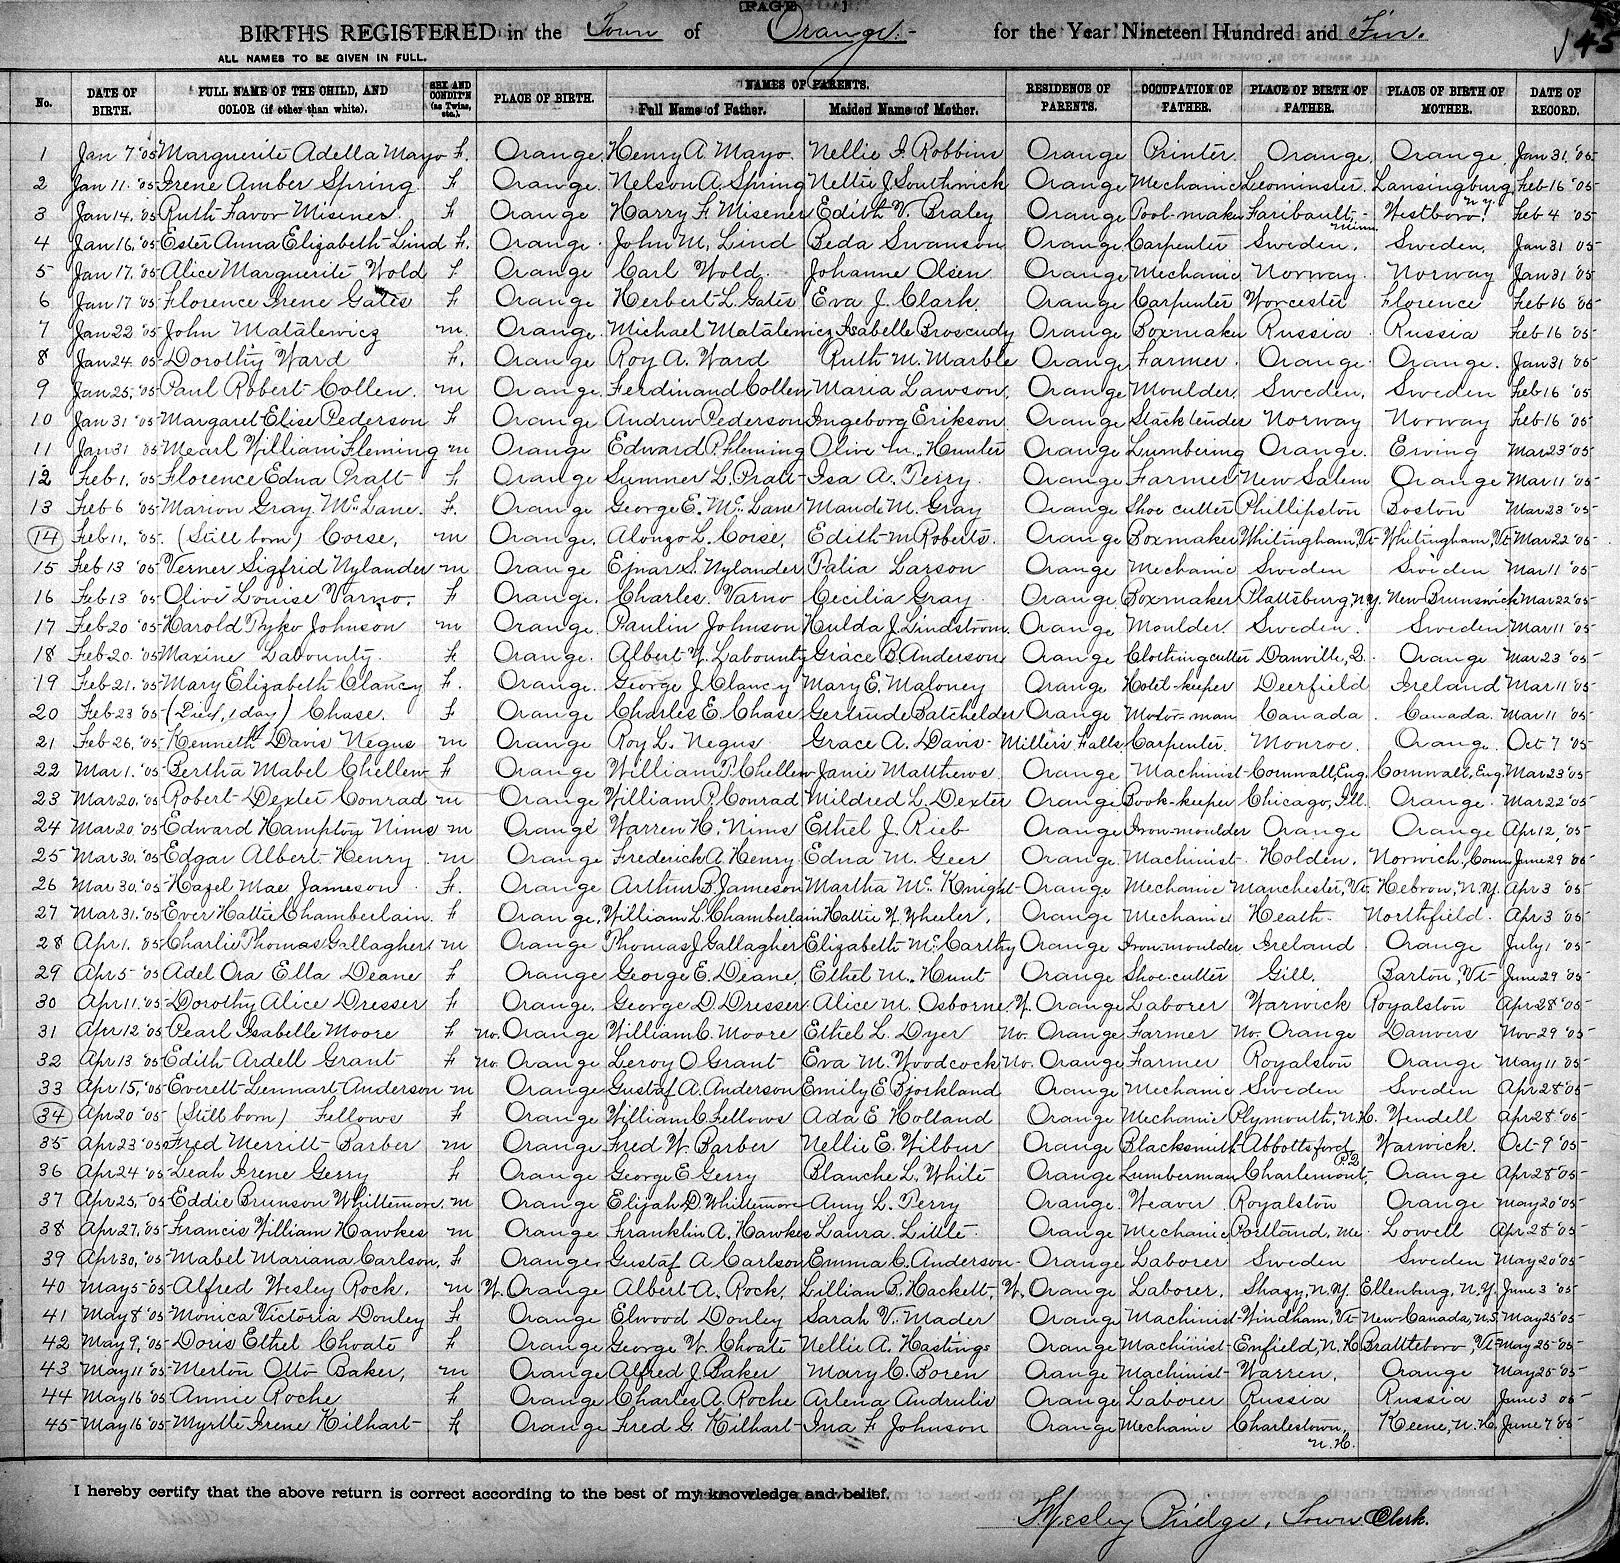 [PAGE ]
BIRTHS REGISTERED in the Town of Orange.- for the Year Nineteen Hundred and Five.
45
ALL NAMES TO BE GIVEN IN FULL.
No. DATE OF BIRTH. FULL NAME OF THE CHILD, AND COLOR (if other than white). SEX AND CONDIT'N (as Twins, etc.). PLACE OF BIRTH. NAMES OF PARENTS. Full Name of Father. Maiden Name of Mother. RESIDENCE OF PARENTS. OCCUPATION OF FATHER. PLACE OF BIRTH OF FATHER. PLACE OF BIRTH OF MOTHER. DATE OF RECORD.
1 Jan 7 '05 Marguerite Adella Mayo F. Orange. Henry A. Mayo. Nellie I. Robbins Orange Printer. Orange. Orange. Jan 31, '05
2 Jan 11. '05 Irene Amber Spring. F Orange. Nelson A. Spring Nellie J. Southwick Orange Mechanic Leominster. Lansingburg, N.Y. Feb 16 '05
3 Jan 14. '05 Ruth Favor Misener. F Orange Harry F. Misener Edith V. Braley Orange Pool-maker Faribault- Minn. Westboro. Feb 4 '05
4 Jan 16, '05 Ester Anna Elizabeth Lind F. Orange. John M. Lind Beda Swanson Orange Carpenter Sweden. Sweden, Jan 31 05
5 Jan 17. '05 Alice Marguerite Wold F Orange Carl Wold. Johanne Olsen Orange Mechanic Norway. Norway Jan 31 '05
6 Jan 17 '05 Florence Irene Gates F Orange Herbert L. Gates Eva J. Clark. Orange Carpenter Worcester Florence Feb 16 '05
7 Jan 22 '05 John Matalewicz m. Orange. Michael Matalewicz Isabelle Broscudy Orange Boxmaker Russia Russia Feb 16 '05
8 Jan 24. 05 Dorothy Ward F. Orange Roy A. Ward Ruth M. Marble Orange Farmer. Orange. Orange. Jan 31 '05
9 Jan 25, '05 Paul Robert Collen. m Orange. Ferdinand Collen Maria Lawson, Orange Moulder, Sweden, Sweden Feb 16 '05
10 Jan 31 '05 Margaret Elise Pederson F Orange. Andrew Pederson Ingeborg Erikson. Orange Stock tender Norway Norway Feb 16 '05
11 Jan 31 05 Mearl William Fleming m Orange. Edward P. Fleming Olive M. Hunter Orange Lumbering Orange. Erving Mar 23 '05
12 Feb 1, '05 Florence Edna Pratt F Orange. Sumner L. Pratt Isa A. Terry. Orange Farmer New Salem Orange Mar 11 '05
13 Feb 6 '05 Marion Gray McLane. F. Orange. George E. McLane Maude M. Gray Orange Shoe cutter Phillipston Boston Mar 23 '05
14 Feb 11, '05. (Still born) Corse, m Orange. Alonzo L. Corse, Edith M Roberts. Orange Boxmaker Whitingham, Vt Whitingham, Vt Mar 22 '05
15 Feb 13 '05 Verner Sigfrid Nylander m Orange Ejnar S. Nylander Talia Larson Orange Mechanic Sweden Sweden Mar 11 '05
16 Feb 13 '05 Olive Louise Varno. F Orange. Charles. Varno Cecilia Gray Orange Boxmaker Plattsburg, N.Y. New Brunswick Mar 22 '05
17 Feb 20 '05 Harold Tyko Johnson m Orange. Paulin Johnson Hulda J. Lindstrom. Orange Moulder. Sweden. Sweden Mar 11 '05
18 Feb 20. '05 Maxine Labounty. F. Orange. Albert N. Labounty Grace B. Anderson Orange Clothing cutter Danville, Q. Orange Mar 23 '05
19 Feb 21. '05 Mary Elizabeth Clancy F. Orange. George J. Clancy Mary E. Maloney Orange Hotel-keeper Deerfield Ireland Mar 11 '05
20 Feb 23 '05 (Died, 1 day) Chase. F Orange. Charles E. Chase Gertrude Batchelder Orange Motor-man Canada. Canada. Mar 11 '05
21 Feb 26, '05 Kenneth Davis Negus m Orange Roy L. Negus Grace A. Davis- Millers Falls Carpenter. Monroe. Orange. Oct 7 '05
22 Mar 1. '05 Bertha Mabel Chellew F Orange William T. Chellew Janie Matthews Orange Machinist- Cornwall, Eng. Cornwall, Eng. Mar 23 '05
23 Mar 20, '05 Robert Dexter Conrad m Orange William P. Conrad Mildred L. Dexter Orange Book-keeper Chicago, Ill. Orange. Mar 22 '05
24 Mar 20 '05 Edward Hampton Nims m Orange Warren H. Nims Ethel J. Rieb Orange Iron-moulder Orange Orange Apr 12, '05
25 Mar 30. '05 Edgar Albert Henry. m Orange. Frederick A. Henry Edna M. Geer Orange Machinist- Holden. Norwich, Conn June 29 '05
26 Mar 30. '05 Hazel Mae Jameson F. Orange Arthur B. Jameson Martha McKnight- Orange Mechanic Manchester, Vt. Hebron, N.Y. Apr 3 '05
27 Mar 31. '05 Ever Hattie Chamberlain. F Orange. William L. Chamberlain Hattie N. Wheeler, Orange Mechanic Heath. Northfield. Apr 3 '05
28 Apr 1. 05 Charlie Thomas Gallagher m Orange. Thomas J Gallagher Elizabeth McCarthy Orange Iron-moulder Ireland Orange July 1 '05
29 Apr 5 '05 Adel Ora Ella Deane F Orange George E. Deane, Ethel M. Hunt Orange Shoe-cutter Gill. Barton, Vt- June 29 '05
30 Apr 11. '05 Dorothy Alice Dresser F Orange. George D. Dresser Alice M. Osborne W. Orange Laborer Warwick Royalston Apr 28 '05
31 Apr 12 '05 Pearl Isabelle Moore F No. Orange William C. Moore Ethel L. Dyer No. Orange Farmer No. Orange Danvers Nov 29 '05
32 Apr 13 '05 Edith Ardell Grant F No. Orange Leroy O Grant Eva M. Woodcock No. Orange Farmer Royalston Orange May 11 '05
33 Apr 15, '05 Everett Lennart Anderson m Orange Gustaf A. Anderson Emily E Bjorkland Orange Mechanic Sweden Sweden Apr 28 '05
34 Apr 20 '05 (Still born) Fellows F Orange William C. Fellows Ada E. Holland Orange Mechanic Plymouth, N.H. Wendell Apr 28 '05
35 Apr 23 '05 Fred Merritt Barber m Orange Fred W. Barber Nellie E. Wilbur Orange Blacksmith Abbottsford, P.Q. Warwick. Oct 9 '05
36 Apr 24 '05 Leah Irene Gerry F Orange George E Gerry Blanche L. White Orange Lumberman Charlemont, Orange Apr 28 '05
37 Apr 25, '05 Eddie Brunson Whittemore. m Orange Elijah D. Whittemore Amy L. Terry Orange Weaver Royalston Orange May 20 '05
38 Apr 27, '05 Francis William Hawkes m Orange Franklin A. Hawkes Laura. Little Orange Mechanic Portland, Me. Lowell Apr 28 '05
39 Apr 30, '05 Mabel Mariana Carlson, F Orange. Gustaf A Carlson Emma C. Anderson- Orange Laborer Sweden Sweden May 20 '05
40 May 5 '05 Alfred Wesley Rock, m W. Orange Albert A. Rock, Lillian B. Hackett, W. Orange Laborer, Shazy, N.Y. Ellenburg, N.Y. June 3 '05
41 May 8 '05 Monica Victoria Donley F Orange Elwood Donley Sarah V. Mader Orange Machinist- Windham, Vt New Canada, N.S. May 25 '05
42 May 9, '05 Doris Ethel Choate F Orange George W. Choate Nellie A. Hastings Orange Machinist- Enfield, N.H. Brattleboro, Vt May 25 '05
43 May 11 '05 Merton Otto Baker, m Orange Alfred J. Baker Mary C. Boren Orange Machinist- Warren, Orange May 25 '05
44 May 16 '05 Annie Roche F Orange Charles A. Roche Arlena Andrulis Orange Laborer Russia Russia June 3 05
45 May 16 '05 Myrtle Irene Kilhart F Orange Fred G. Kilhart Ina F Johnson Orange Mechanic Charlestown, N.H. Keene, N.H. June 7 '05
I hereby certify that the above return is correct according to the best of my knowledge and belief.
Wesley Pridge, Town Clerk.